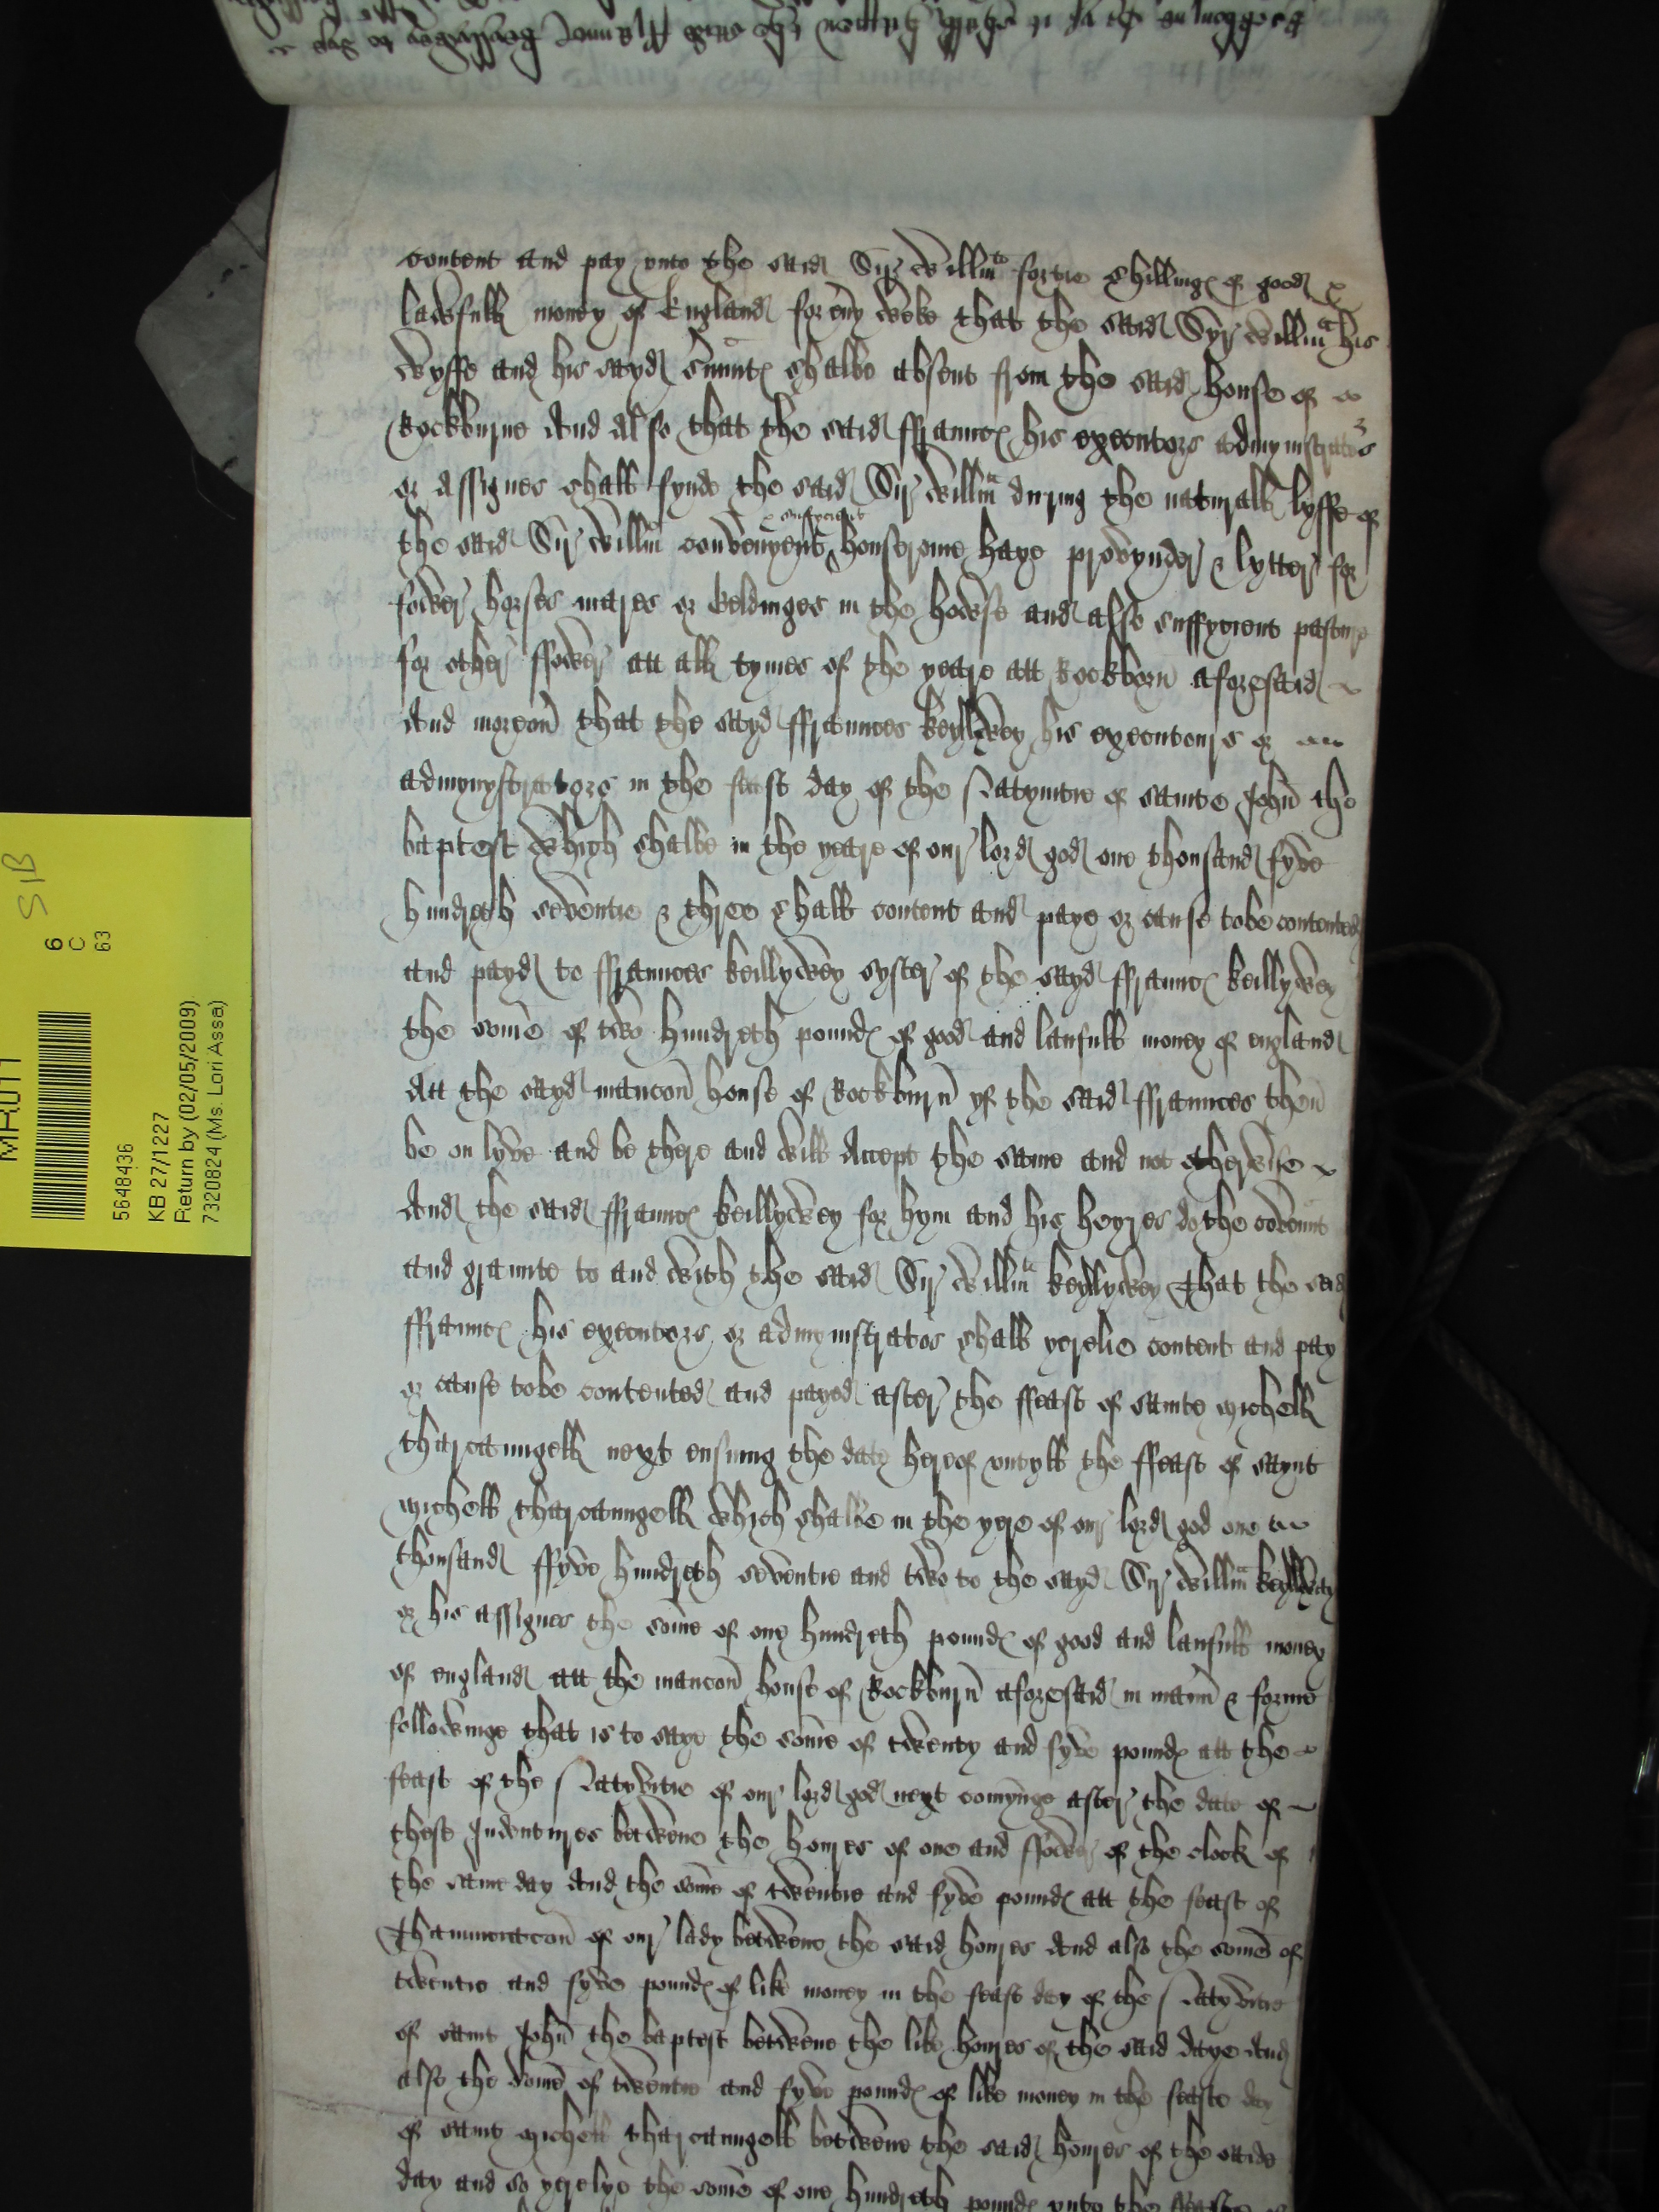 content and pay unto the said Sir Willm fortie shillings of good
lawfull money of England for eny weke that the said Syr Willm his
wyffe and his sayd sernts shalbe absent from the said house of
Rockburne And Also that the said ffraunces his executors admynistrators
or Assignes shall fynde the said Sir Willm during the naturall lyffe of
the said Sir Willm convenyent houserome haye provynder & lytter for
sufficient
fower horses mares or Geldinges in the howse and also suffycient pasture
for other ffower att all tymes of the yeare att Rockborn aforesaid
And moreov that the sayd ffraunces keyllwey his executours or
admynystrators in the feast day of the Natyvitie of sainte John the
baptest which shalbe in the yeare of our lord god one thousand fyve
hundreth seventie & three shall content and paye or cause tobe contented
and payd to ffraunces keillywey syster of the sayd ffraunces keillywey
the some of two hundreth pounds of good and laufull money of england
Att the sayd mancon house of Rockburn yf the said ffraunces then
be on lyve and be there and will Accept the same and not otherwise
And the said ffraunces keillywey for hym and his heyres dothe covennt
and graunte to and with the said Sir Willm keyllywey That the said
ffraunces his executors or admynistrators shall yerelie content and pay
or cause tobe contented and payed after the ffeast of sainte michell
tharcaungell next ensuing the date hereof untyll the ffeast of saynt
michell tharcaungell which shalbe in the yere of our lord god one
thousand ffyve hundreth seventie and two to the sayd Sir Willm keyllwey
or his assignes the some of one hundreth pounds of good and laufull money
of england att the mancon house of Rockburn aforesaid in mann & forme
followinge that is to saye the some of twenty and fyve pounds att the
feast of the Natyvitie of our lord god next comynge after the date of
these Indentures betwene the houres of one and ffower of the clock of
the same day And the some of twentie and fyve pounds att the feast of
Thannunciacon of our lady betwene the said houres And also the some of
twentie and fyve pounds of like money in the feast day of the Natyvitie
of saint John the baptest betwene the like houres of the said daye And
also the some of twentie and fyve pounds of like money in the feaste day
of saint michell tharcaungell betwene the said houres of the saide
day and so yerelye the some of one hundreth pounds unto the feaste of
SIB
6
C
63
MR011
5648436
KB 27/1227
Return by (02/05/2009)
7320824 (Ms. Lori Assa)